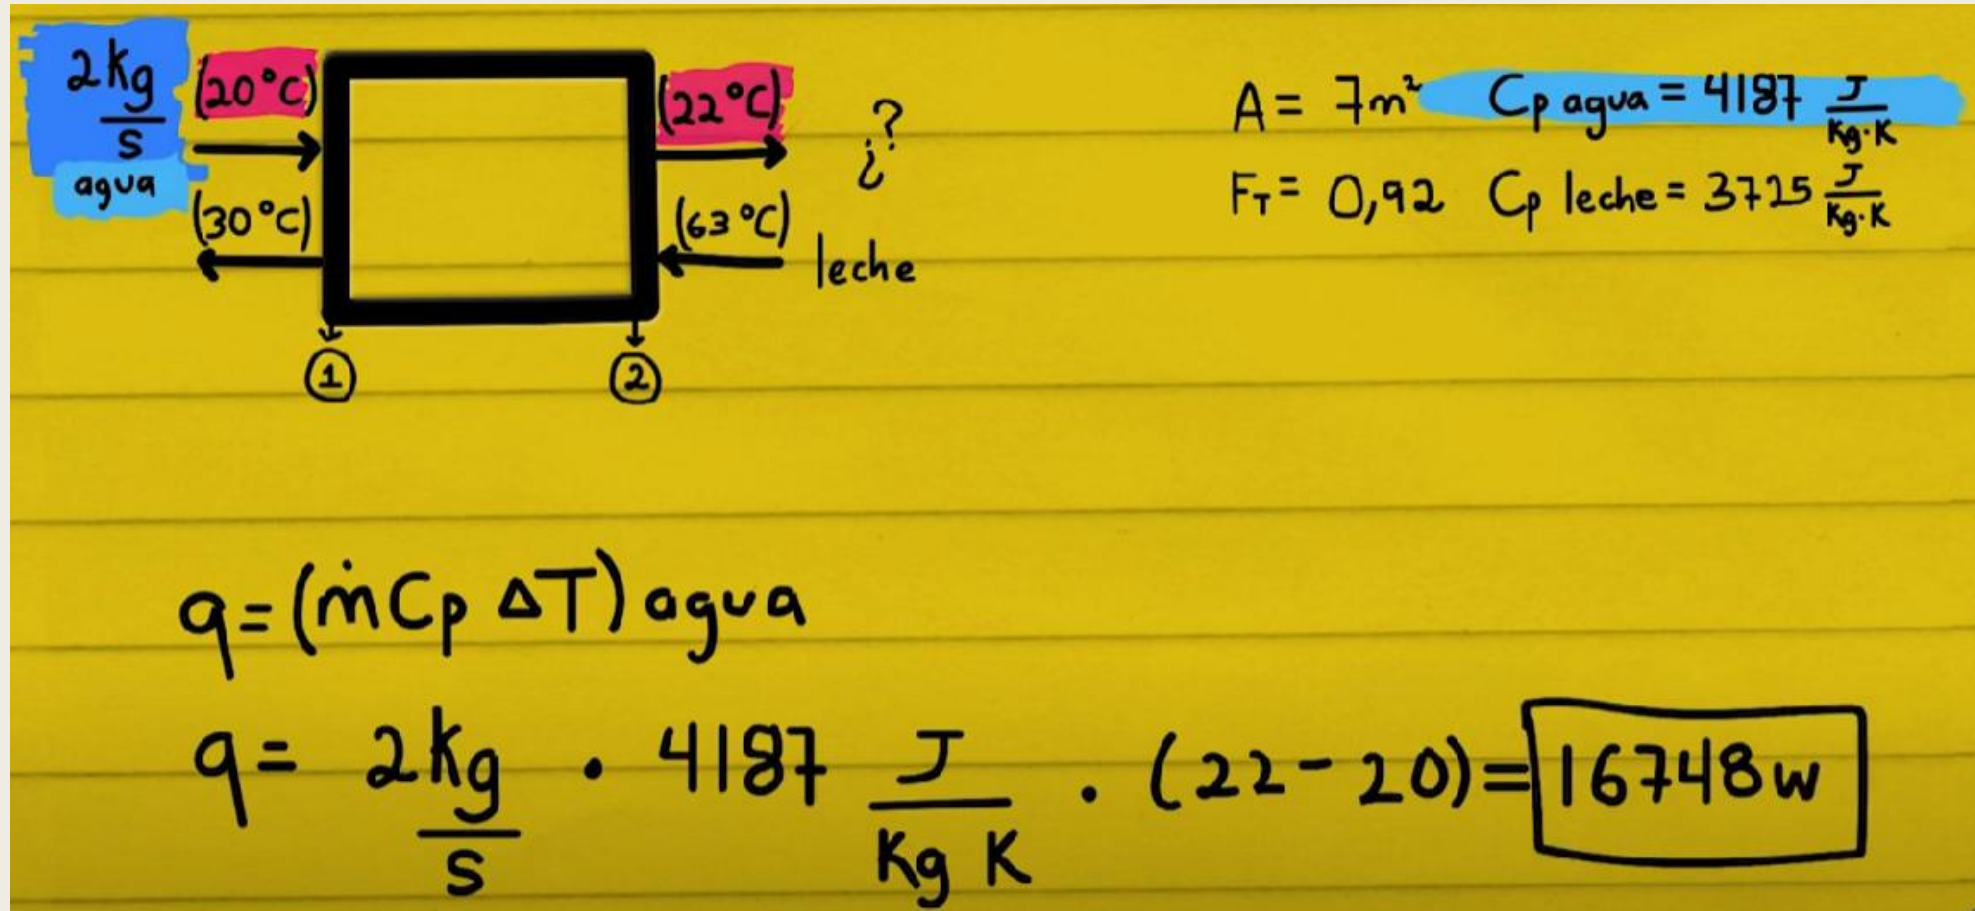 2kg/s (20°C) (22°C) ¿?
agua
(30°C) (63°C) leche
1 2
A = 7m² Cp agua = 4187 J/Kg·K
F_T = 0,92 Cp leche = 3725 J/Kg·K
q = (ṁ Cp ΔT) agua
q = 2kg/s · 4187 J/Kg K · (22-20) = 16748 w